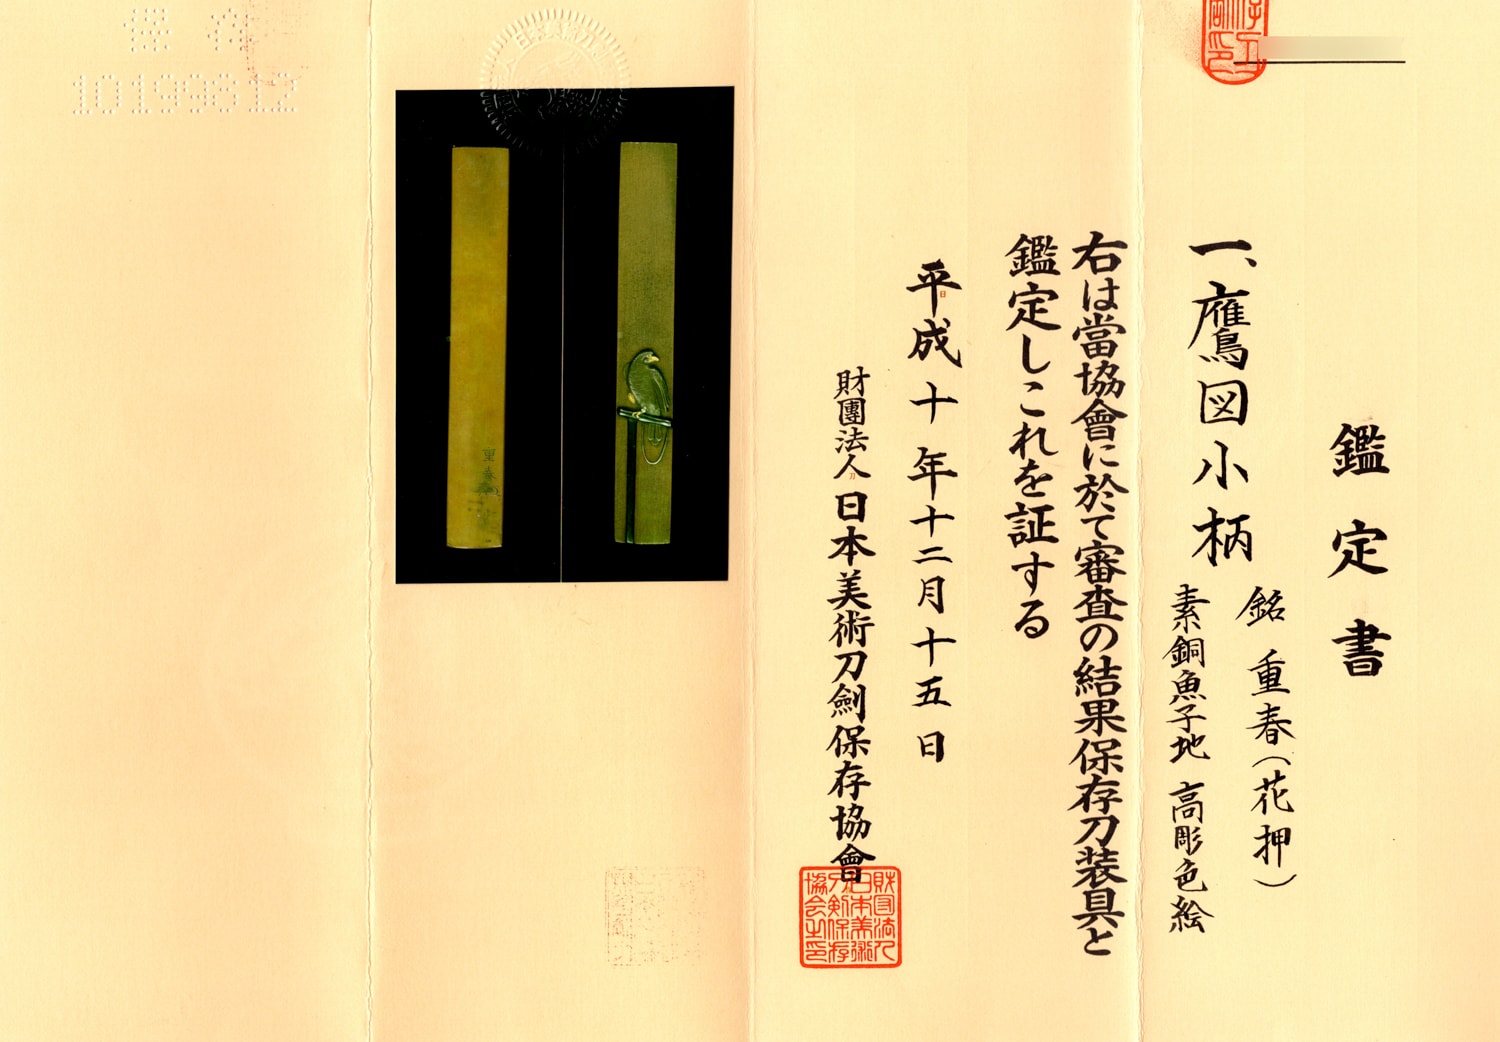 鑑定書
一、鷹図小柄
銘 重春(花押)
素銅魚子地 高彫色絵
右は當協會に於て審査の結果保存刀装具と
鑑定しこれを証する
平成十年十二月十五日
財團法人日本美術刀劍保存協會
財団法人
日本美術
刀剣保存
協会之印
重春
保存
10199812